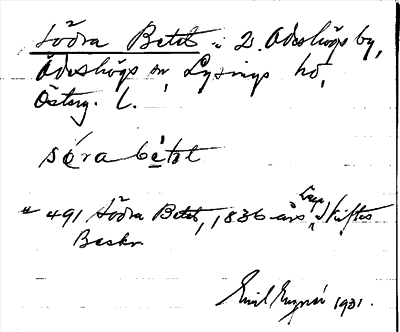 Södra Betet i 2. Ödeshögs by,
Ödeshögs sn Lysings hd,
Österg. l.
söra bétet
" 491 Södra Betet, 1836 års Laga Skiftes
Beskr
Emil 1931.